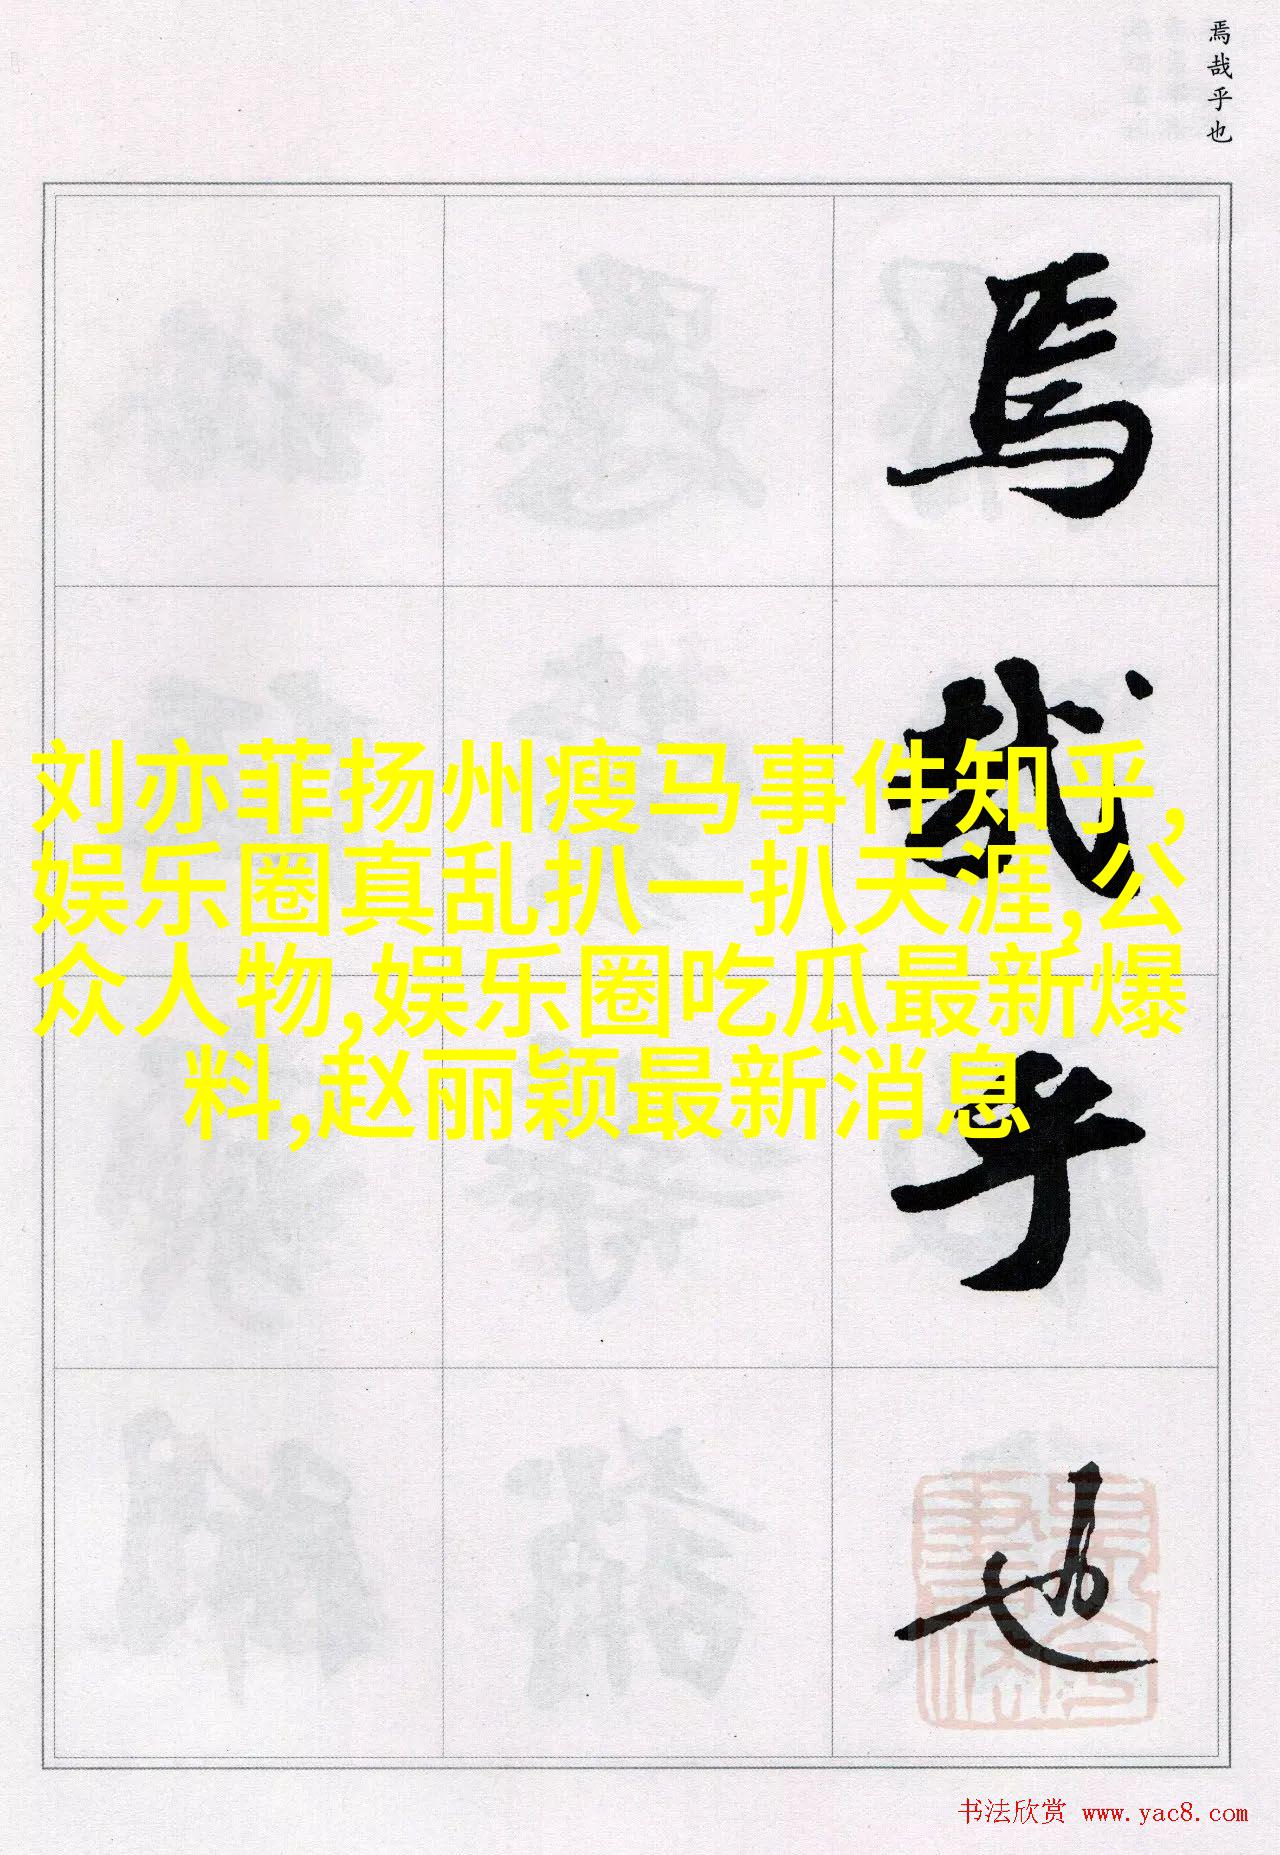 焉哉乎也
焉
哉
乎
也
刘亦菲扬州瘦马事件知乎,
娱乐圈真乱扒一扒天涯,公
众人物,娱乐圈吃瓜最新爆
料,赵丽颖最新消息
书法欣赏 www.yac8.com